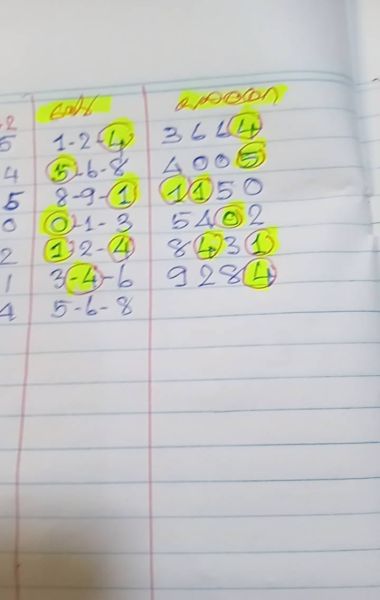 2
5 1-2-4 3664
4 5-6-8 4005
5 8-9-1 1150
0 0-1-3 5402
2 1-2-4 8431
1 3-4-6 9284
4 5-6-8